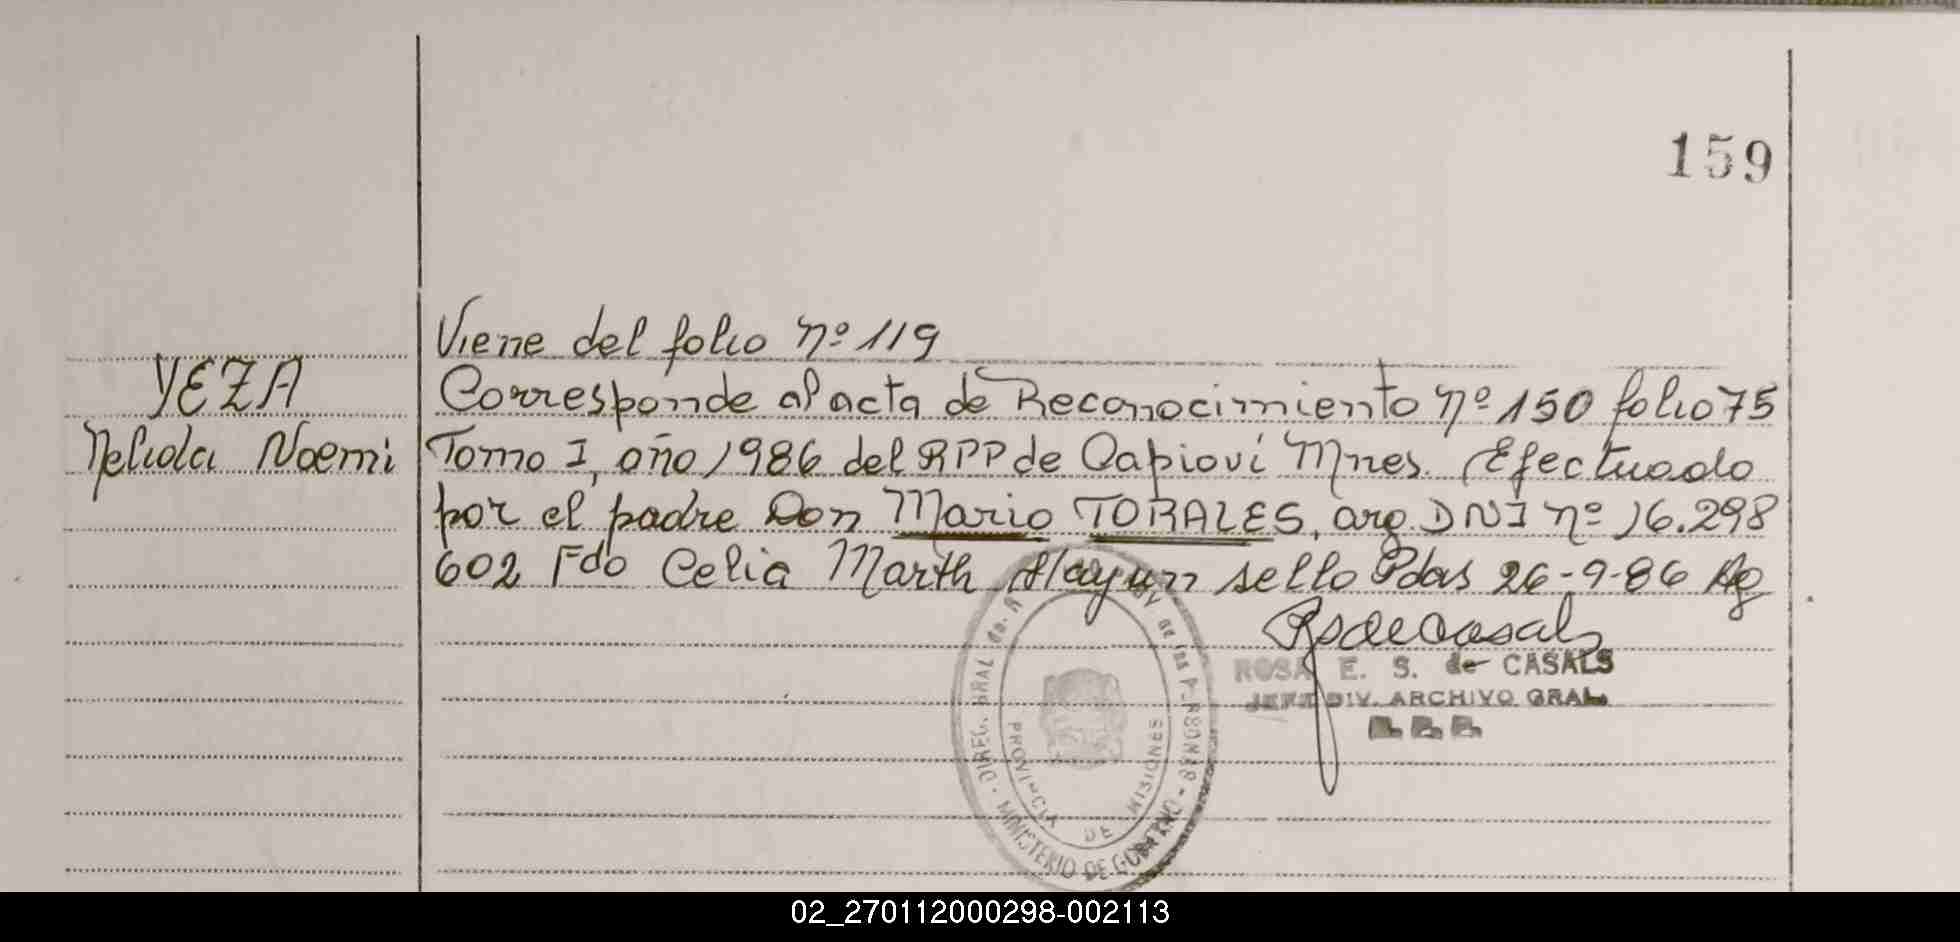 159
Viene del folio nº 119
YEZA
Corresponde al acta de Reconocimiento nº 150 folio 75
Nelida Noemi
Tomo I, año 1986 del RPP de Capioví Mnes. Efectuado
por el padre Don Mario TORALES, arg. DNI nº 16.298
602 Fdo Celia Marth sello Pdas 26-9-86
ROSA E. S. de CASALS
JEFE DIV. ARCHIVO GRAL.
DIREC. GRAL
MINISTERIO DE GOBIERNO
PROVINCIA DE MISIONES
02_270112000298-002113